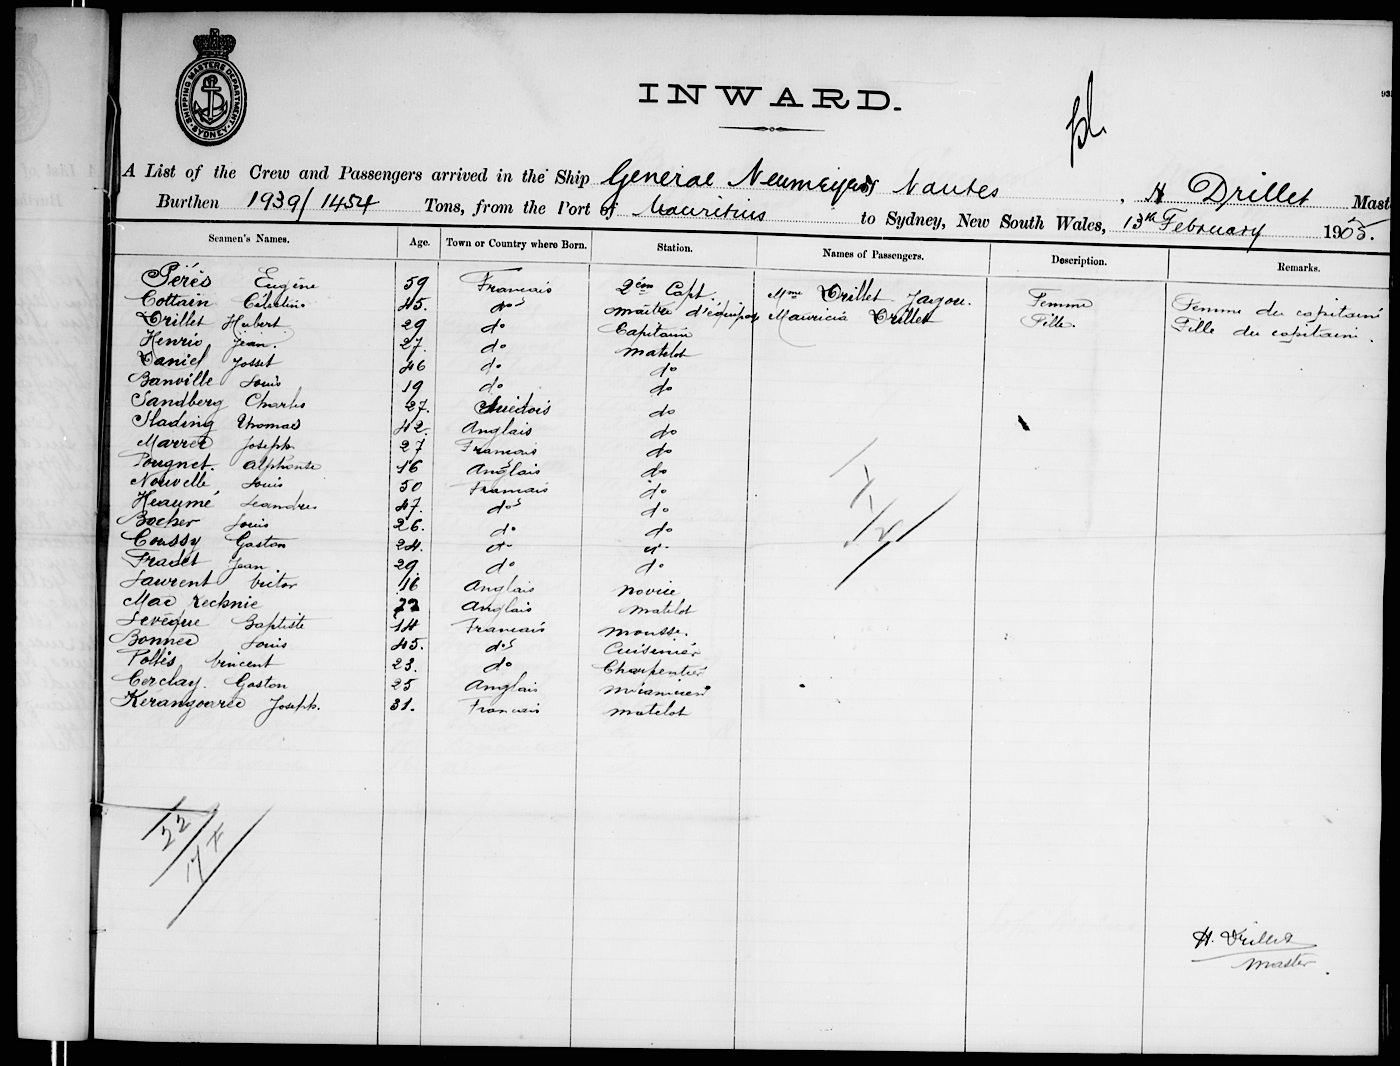 SHIPPING MASTERS DEPARTMENT
SYDNEY
INWARD.
93
A List of the Crew and Passengers arrived in the Ship General Neumeyer of Nantes, H Drillet Mast
Burthen 1939/1454 Tons, from the Port of Mauritius to Sydney, New South Wales, 13th February 1905.
Seamen's Names. Age. Town or Country where Born. Station. Names of Passengers. Description. Remarks.
Pérès Eugène 59 Francais 2eme Capt. Mme Drillet Jagou. Femme Femme du capitaine
Cottain Célestin 45. do maître d'équipage Mauricia Drillet Fille. Fille du capitaine.
Drillet Hubert 29 do Capitaine
Henrio Jean. 27. do matelot
Daniel Josset 46 do do
Banville Louis 19 do do
Sandberg Charles 27. Suédois do
Slading Thomas 42. Anglais do
Marrec Joseph 27 Francais do
Pougnet. Alphonse 16 Anglais do
Nouvelle Louis 50 Francais do
Heaumé Leandre 47. do do
Bocher Louis 26. do do
Coussy Gaston 24. do do
Fradet Jean 29 do do
Laurent Victor 16 Anglais novice
Mac Kechnie 22 Anglais matelot
Levêque Baptiste 14 Francais mousse.
Bonnec Louis 45. do Cuisinier
Poltès Vincent 23. do Charpentier
Cerclay. Gaston 25 Anglais mécanicien
Kérangoarec Joseph. 31. Francais matelot
22
17
H. Drillet
Master.